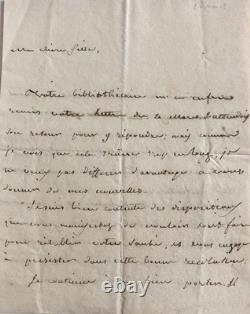 Ma chère fille,
Votre bibliothécaire m'a enfin
remis votre lettre et m'a
son retour pour y répondre, mais comme
je vois que cela traîne trop en long, je
ne veux pas différer davantage à vous
donner de mes nouvelles.
Je suis bien contente des dispositions
que vous manifestez de vouloir tout faire
pour rétablir votre santé, et vous engage
à persister dans cette bonne résolution.
Je continue bien porter. Il